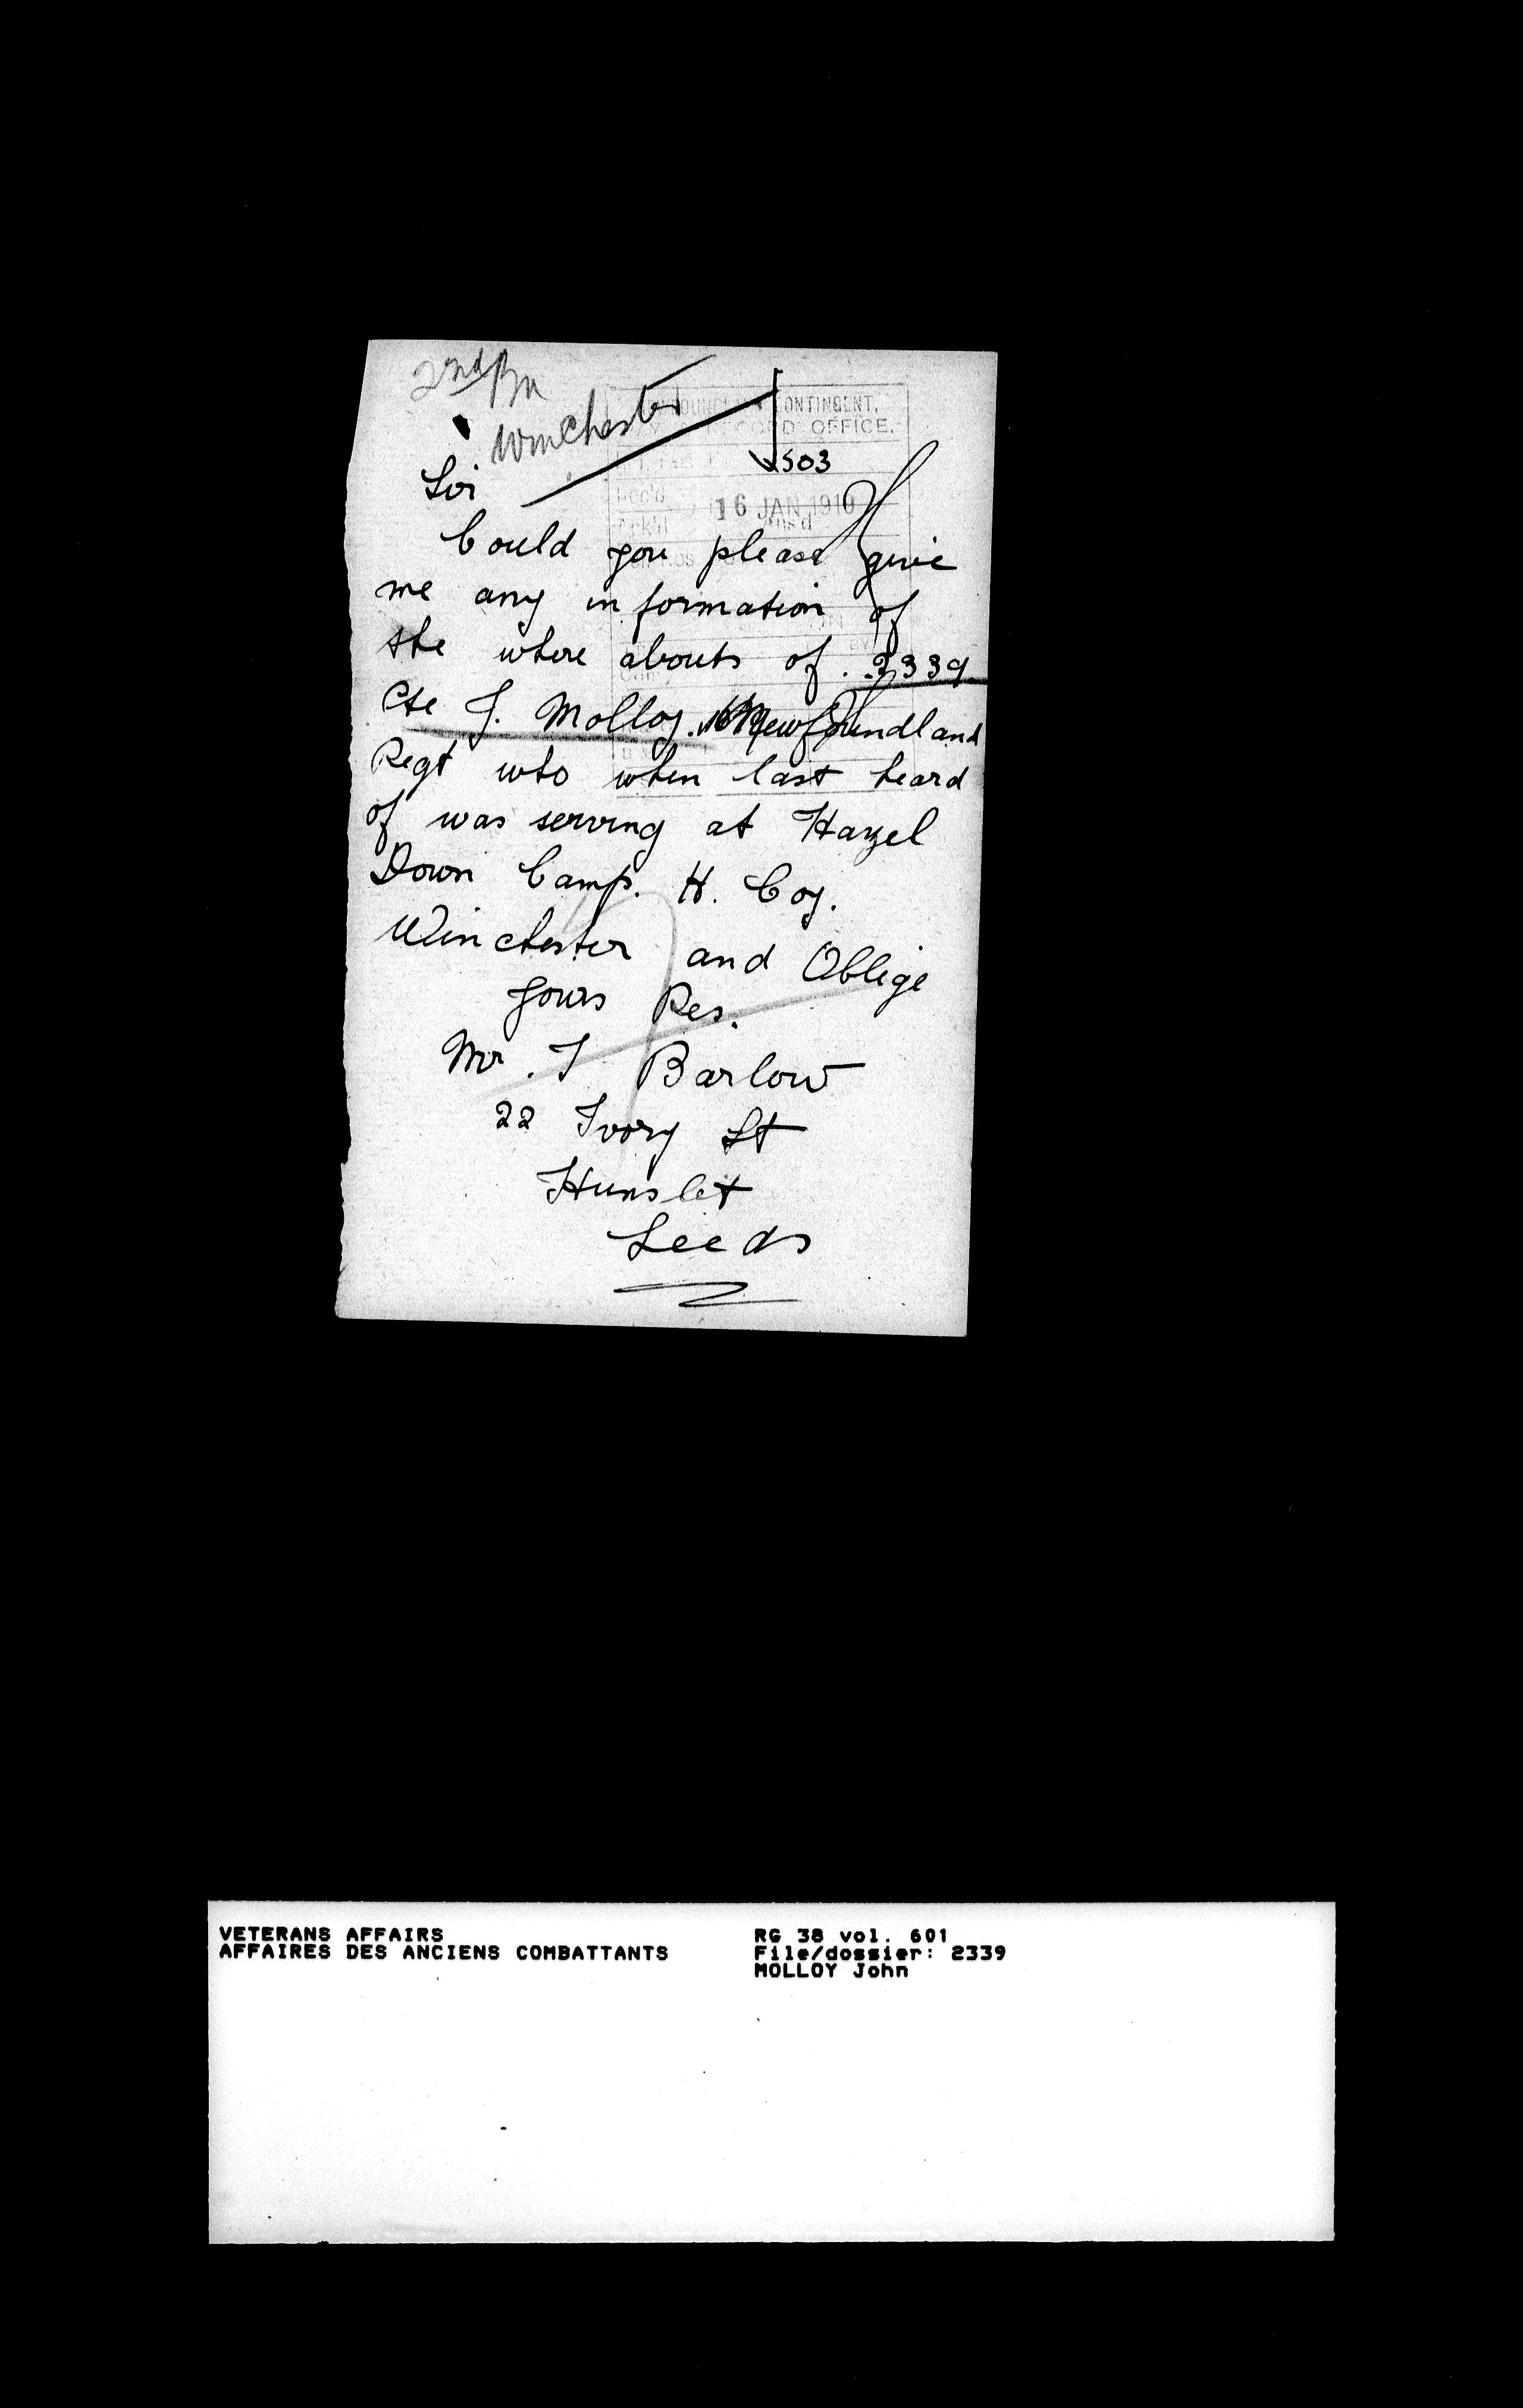 2nd Bn
Winchester
CONTINGENT,
RECORD OFFICE.
503
Rec'd
16 JAN 1919
Ack'd Ans'd
Sir
Could you please give
me any information of
the where abouts of . 2339
Pte J. Molloy. Newfoundland
Regt who when last heard
of was serving at Hazel
Down Camp. H. Coy.
Winchester and Oblige
Yours Res.
Mr. T Barlow
22 Ivory St
Hunslet
Leeds
VETERANS AFFAIRS
AFFAIRES DES ANCIENS COMBATTANTS
RG 38 vol. 601
File/dossier: 2339
MOLLOY John